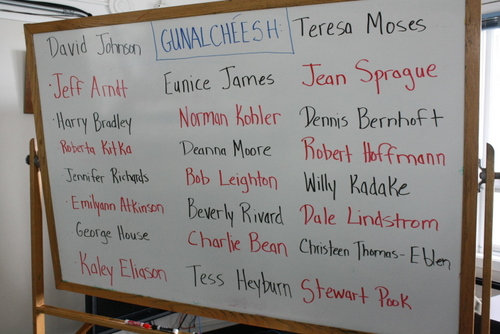 GUNALCHÉESH:
David Johnson
Jeff Arndt
Harry Bradley
Roberta Kitka
Jennifer Richards
Emilyann Atkinson
George House
Kaley Eliason
Eunice James
Norman Kohler
Deanna Moore
Bob Leighton
Beverly Rivard
Charlie Bean
Tess Heyburn
Teresa Moses
Jean Sprague
Dennis Bernhoft
Robert Hoffmann
Willy Kadake
Dale Lindstrom
Christeen Thomas-Eblen
Stewart Pook